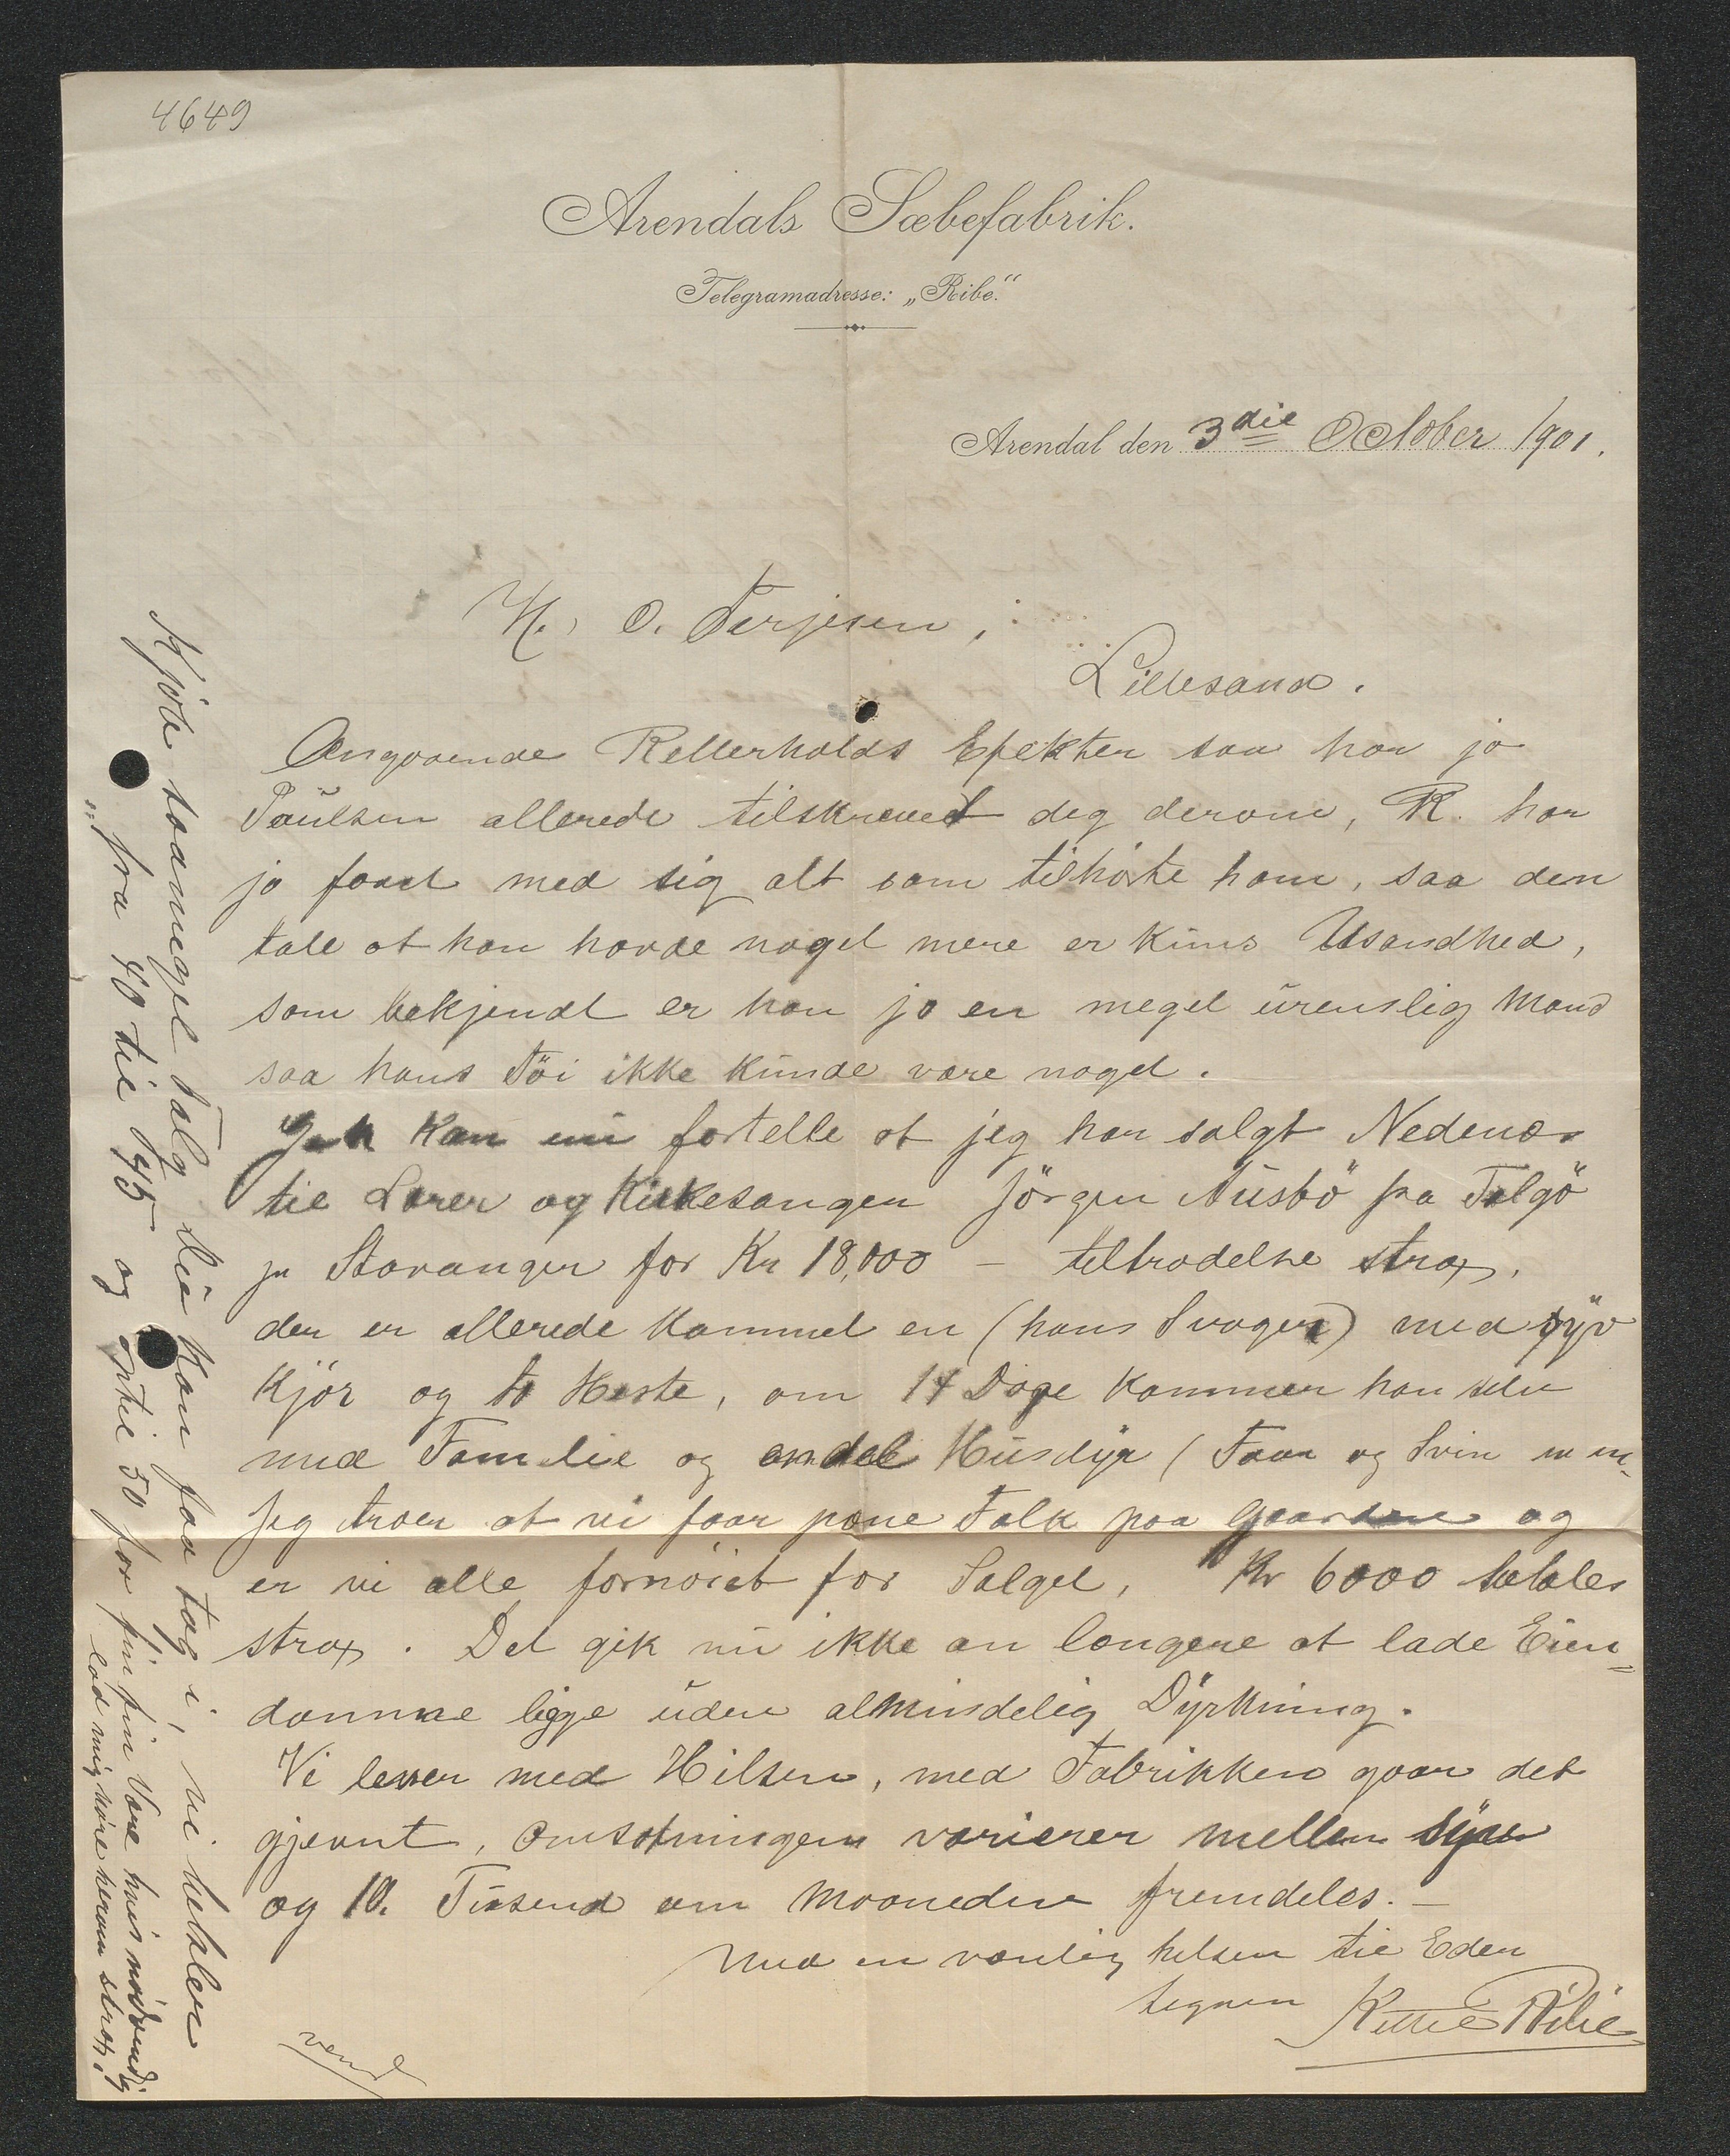 4649
Arendals Sæbefabrik.
Telegramadresse: „Ribe.“
Arendal den 3die October 1901.
H. O. Terjesen,
Lillesand.
Angaaende Rellerholds Efekter saa har jo
Paulsen allerede tilskrevet deg derom, R. har
jo faaet med sig alt som tilhørte ham, saa den
tale at han havde noget mere er kuns Usandhed,
som bekjendt er han jo en meget urenslig Mand
saa hans Töi ikke kunde være noget.
Jeg kan nu fortelle at jeg har solgt Nedenæs
til Lærer og Kirkesanger Jörgen Ausbö fra Talgö
pr Stavanger for Kr 18,000 – tiltrædelse strax,
der er allerede kommet en (hans Svoger) med syv
Kjör og to Heste, om 14 Dage kommer han selv
med Familie og endel Husdyr (Faar og Svin m m
Jeg troer at vi faar pæne Folk paa Gaarden og
er vi alle fornöiet for Salget, Kr 6000 betales
strax. Det gik nu ikke an længere at lade Eien=
domme ligge uden almindelig Dyrkning.
Vi lever med Hilsen, med Fabrikken gaar det
gjevnt, omsætningen varierer mellem syv
og 10. Tusend om Maaneden fremdeles. –
Med en vænlig hilsen til Eder
tegner Kittel Ribe
vend
Kjöb saameget Talg du kan faa tag i, vi betaler
„ fra 40 til 45 og indtil 50 for fin fin Vare hvis nödvendig
lad mig höre herom strax,